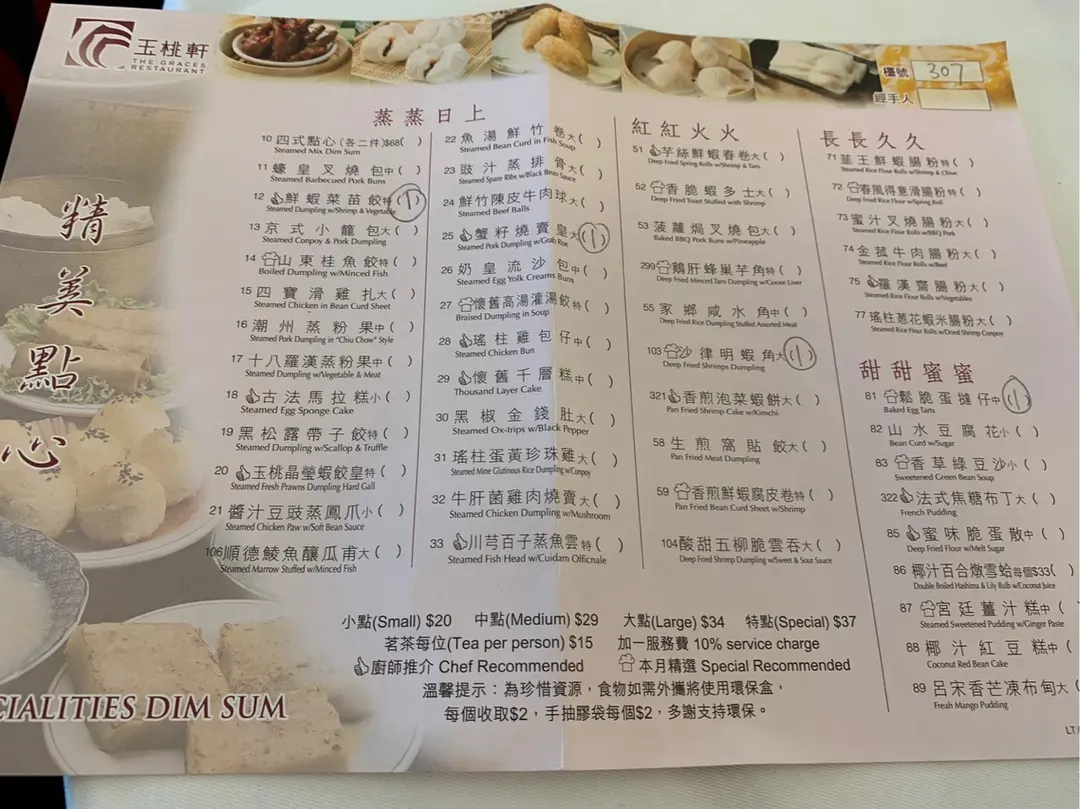 玉桃軒
THE GRACES
RESTAURANT
檯號 307
經手人
精美點心
蒸蒸日上
10 四式點心 (各二件)$68( )
Steamed Mix Dim Sum
11 蠔皇叉燒包中( )
Steamed Barbecued Pork Buns
12 鮮蝦菜苗餃特(1)
Steamed Dumpling w/Shrimp & Vegetable
13 京式小籠包大( )
Steamed Conpoy & Pork Dumpling
14 山東桂魚餃特( )
Boiled Dumpling w/Minced Fish
15 四寶滑雞扎大( )
Steamed Chicken in Bean Curd Sheet
16 潮州蒸粉果中( )
Steamed Pork Dumpling in "Chiu Chow" Style
17 十八羅漢蒸粉果中( )
Steamed Dumpling w/Vegetable & Meat
18 古法馬拉糕小( )
Steamed Egg Sponge Cake
19 黑松露帶子餃特( )
Steamed Dumpling w/Scallop & Truffle
20 玉桃晶瑩蝦餃皇特( )
Steamed Fresh Prawns Dumpling Hard Gall
21 醬汁豆豉蒸鳳爪小( )
Steamed Chicken Paw w/Soft Bean Sauce
106 順德鯪魚釀瓜甫大( )
Steamed Marrow Stuffed w/Minced Fish
22 魚湯鮮竹卷大( )
Steamed Bean Curd in Fish Soup
23 豉汁蒸排骨大( )
Steamed Spare Ribs w/Black Bean Sauce
24 鮮竹陳皮牛肉球大( )
Steamed Beef Balls
25 蟹籽燒賣皇大(1)
Steamed Pork Dumpling w/Grab Roe
26 奶皇流沙包中( )
Steamed Egg Yolk Creams Buns
27 懷舊高湯灌湯餃特( )
Braised Dumpling in Soup
28 瑤柱雞包仔中( )
Steamed Chicken Bun
29 懷舊千層糕中( )
Thousand Layer Cake
30 黑椒金錢肚大( )
Steamed Ox-trips w/Black Pepper
31 瑤柱蛋黃珍珠雞大( )
Steamed Mine Glutinous Rice Dumpling w/Conpoy
32 牛肝菌雞肉燒賣大( )
Steamed Chicken Dumpling w/Mushroom
33 川芎百子蒸魚雲特( )
Steamed Fish Head w/Cuidam Officnale
紅紅火火
51 芋絲鮮蝦春卷大( )
Deep Fried Spring Rolls w/Shrimp & Tarn
52 香脆蝦多士大( )
Deep Fried Toast Stuffed with Shrimp
53 菠蘿焗叉燒包大( )
Baked BBQ Pork Buns w/Pineapple
299 鵝肝蜂巢芋角特( )
Deep Fried Minced Tarn Dumpling w/Goose Liver
55 家鄉咸水角中( )
Deep Fried Rice Dumpling Stuffed Assorted Meat
103 沙律明蝦角大(1)
Deep Fried Shrimps Dumpling
321 香煎泡菜蝦餅大( )
Pan Fried Shrimp Cake w/Kimchi
58 生煎窩貼餃大( )
Pan Fried Meat Dumpling
59 香煎鮮蝦腐皮卷特( )
Pan Fried Bean Curd Sheet w/Shrimp
104 酸甜五柳脆雲吞大( )
Deep Fried Shrimp Dumpling w/Sweet & Sour Sauce
長長久久
71 韮王鮮蝦腸粉特( )
Steamed Rice Flour Rolls w/Shrimp & Chive
72 春風得意滑腸粉特( )
Steamed Rice Flour Rol w/Spring Roll
73 蜜汁叉燒腸粉大( )
Steamed Rice Flour Rolls w/BBQ Pork
74 金菰牛肉腸粉大( )
Steamed Rice Flour Rolls w/Beef
75 羅漢齋腸粉大( )
Steamed Rice Flour Rolls w/Vegetables
77 瑤柱葱花蝦米腸粉大( )
Steamed Rice Flour Rolls w/Dried Shrimp Conpoy
甜甜蜜蜜
81 鬆脆蛋撻仔中(1)
Baked Egg Tarts
82 山水豆腐花小( )
Bean Curd w/Sugar
83 香草綠豆沙小( )
Sweetened Green Bean Soup
322 法式焦糖布丁大( )
French Pudding
85 蜜味脆蛋散中( )
Deep Fried Flour w/Melt Sugar
86 椰汁百合燉雪蛤每個$33( )
Double Boiled Hashima & Lily Bulb w/Coconut Juice
87 宮廷薑汁糕中(
Steamed Sweetened Pudding w/Ginger Paste
88 椰汁紅豆糕中(
Coconut Red Bean Cake
89 呂宋香芒凍布甸大(
Freah Mango Pudding
小點(Small) $20 中點(Medium) $29 大點(Large) $34 特點(Special) $37
茗茶每位(Tea per person) $15 加一服務費 10% service charge
廚師推介 Chef Recommended 本月精選 Special Recommended
溫馨提示：為珍惜資源，食物如需外攜將使用環保盒，
每個收取$2，手抽膠袋每個$2，多謝支持環保。
CIALITIES DIM SUM